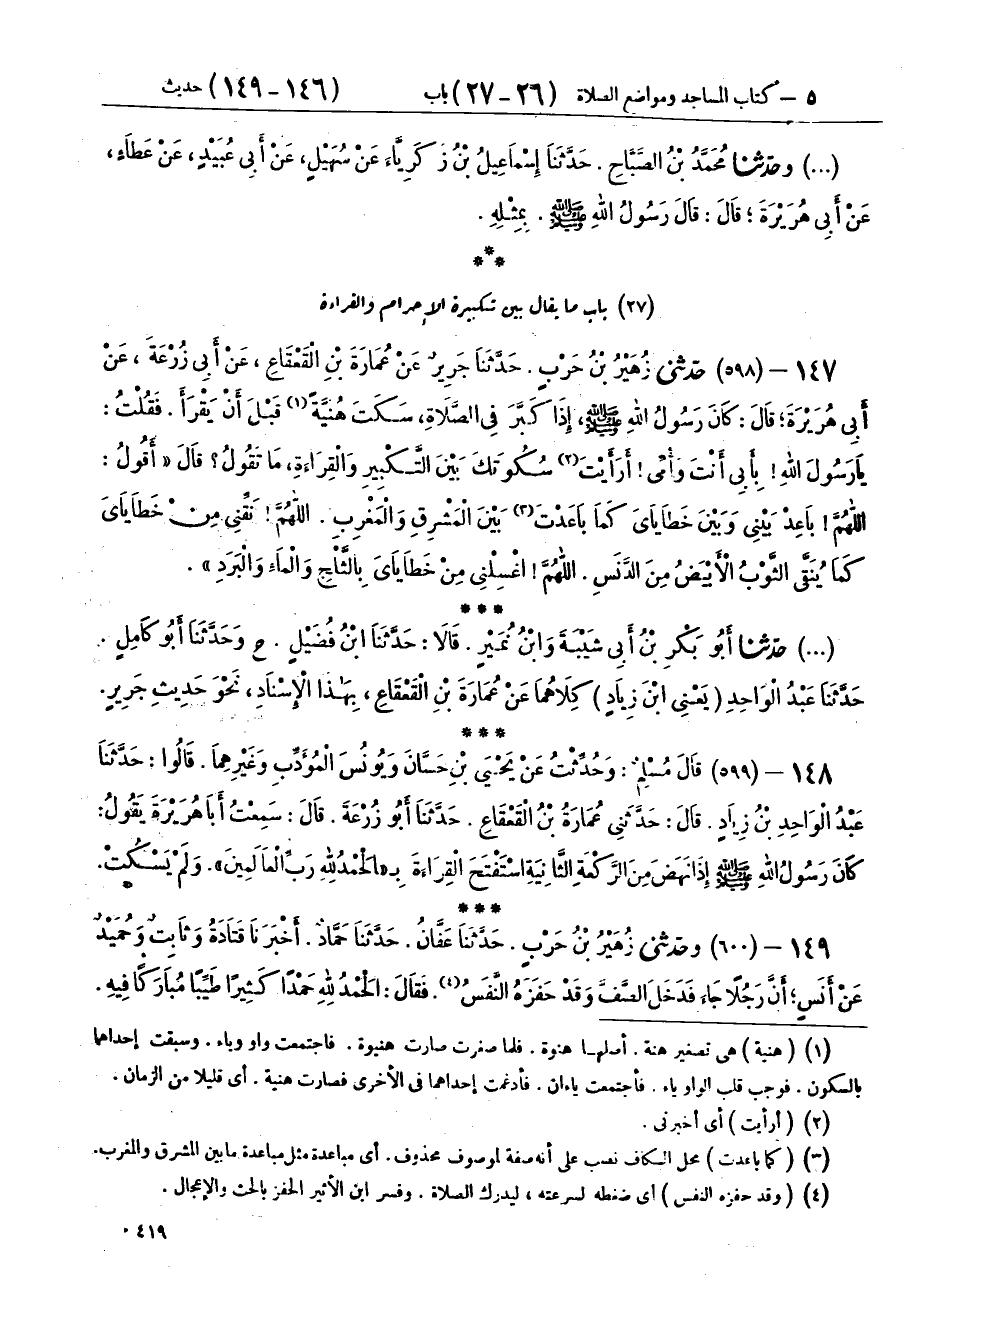 ٥ – كتاب المساجد ومواضع الصلاة (٢٦ – ٢٧) باب (١٤٦ – ١٤٩) حديث
(...) وحدثنا مُحَمَّدُ بْنُ الصَّبَّاحِ . حَدَّثَنَا إِسْمَاعِيلُ بْنُ زَكَرِيَّاءَ عَنْ سُهَيْلٍ، عَنْ أَبِى عُبَيْدٍ، عَنْ عَطَاءٍ،
عَنْ أَبِى هُرَيْرَةَ ؛ قَالَ : قَالَ رَسُولُ اللهِ ﷺ . بِمِثْلِهِ .
***
(٢٧) باب ما يقال بين تكبيرة الإحرام والقراءة
١٤٧ – (٥٩٨) حدثنى زُهَيْرُ بْنُ حَرْبٍ . حَدَّثَنَا جَرِيرٌ عَنْ عُمَارَةَ بْنِ الْقَعْقَاعِ ، عَنْ أَبِى زُرْعَةَ ، عَنْ
أَبِى هُرَيْرَةَ؛ قَالَ : كَانَ رَسُولُ اللهِ ﷺ، إِذَا كَبَّرَ فِى الصَّلَاةِ، سَكَتَ هُنَيَّةً(١) قَبْلَ أَنْ يَقْرَأَ . فَقُلْتُ :
يَا رَسُولَ اللهِ! بِأَبِى أَنْتَ وَأُمِّى! أَرَأَيْتَ(٢) سُكُوتَكَ بَيْنَ التَّكْبِيرِ وَالْقِرَاءَةِ، مَا تَقُولُ؟ قَالَ « أَقُولُ :
اللّٰهُمَّ! بَاعِدْ بَيْنِى وَبَيْنَ خَطَايَاىَ كَمَا بَاعَدْتَ(٣) بَيْنَ الْمَشْرِقِ وَالْمَغْرِبِ . اللّٰهُمَّ! نَقِّنِى مِنْ خَطَايَاىَ
كَمَا يُنَقَّى الثَّوْبُ الْأَبْيَضُ مِنَ الدَّنَسِ . اللّٰهُمَّ! اغْسِلْنِى مِنْ خَطَايَاىَ بِالثَّلْجِ وَالْمَاءِ وَالْبَرَدِ» .
***
(...) حدثنا أَبُو بَكْرِ بْنُ أَبِى شَيْبَةَ وَابْنُ نُمَيْرٍ . قَالَا : حَدَّثَنَا ابْنُ فُضَيْلٍ . ح وَحَدَّثَنَا أَبُو كَامِلٍ .
حَدَّثَنَا عَبْدُ الْوَاحِدِ ( يَعْنِى ابْنَ زِيَادٍ ) كِلَاهُمَا عَنْ عُمَارَةَ بْنِ الْقَعْقَاعِ ، بِهٰذَا الْإِسْنَادِ ، نَحْوَ حَدِيثِ جَرِيرٍ.
***
١٤٨ – (٥٩٩) قَالَ مُسْلِمٌ : وَحُدِّثْتُ عَنْ يَحْيَى بْنِ حَسَّانَ وَيُونُسَ الْمُؤَدِّبِ وَغَيْرِهِمَا . قَالُوا : حَدَّثَنَا
عَبْدُ الْوَاحِدِ بْنُ زِيَادٍ . قَالَ : حَدَّثَنِى عُمَارَةُ بْنُ الْقَعْقَاعِ . حَدَّثَنَا أَبُو زُرْعَةَ . قَالَ : سَمِعْتُ أَبَا هُرَيْرَةَ يَقُولُ:
كَانَ رَسُولُ اللهِ ﷺ إِذَا نَهَضَ مِنَ الرَّكْعَةِ الثَّانِيَةِ اسْتَفْتَحَ الْقِرَاءَةَ بِـ «الْحَمْدُ لِلهِ رَبِّ الْعَالَمِينَ». وَلَمْ يَسْكُتْ.
***
١٤٩ – (٦٠٠) وحدثنى زُهَيْرُ بْنُ حَرْبٍ . حَدَّثَنَا عَفَّانُ . حَدَّثَنَا حَمَّادٌ . أَخْبَرَنَا قَتَادَةُ وَثَابِتٌ وَحُمَيْدٌ
عَنْ أَنَسٍ؛ أَنَّ رَجُلًا جَاءَ فَدَخَلَ الصَّفَّ وَقَدْ حَفَزَهُ النَّفَسُ(٤). فَقَالَ : الْحَمْدُ لِلهِ حَمْدًا كَثِيرًا طَيِّبًا مُبَارَكًا فِيهِ .
(١) (هنية) هى تصغير هنة . أصلها هنوة . فلما صغرت صارت هنيوة . فاجتمعت واو وياء . وسبقت إحداهما
بالسكون . فوجب قلب الواو ياء . فاجتمعت ياءان . فأدغمت إحداهما فى الأخرى فصارت هنية . أى قليلا من الزمان .
(٢) (أرأيت) أى أخبرنى .
(٣) (كما باعدت) محل الكاف نصب على أنه صفة لموصوف محذوف. أى مباعدة مثل مباعدة ما بين المشرق والمغرب.
(٤) (وقد حفزه النفس) أى ضغطه لسرعته ، ليدرك الصلاة . وفسر ابن الأثير الحفز بالحث والإعجال .
٤١٩